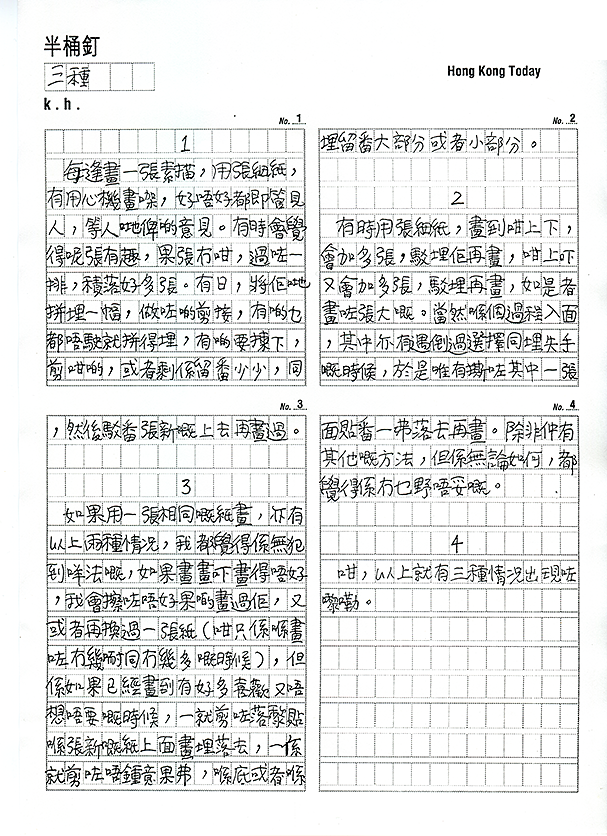 半桶釘
三種
Hong Kong Today
k.h.
No. 1
1
每逢畫一張素描，用張細紙，
有用心機畫㗎，好唔好都即管見
人，等人哋俾啲意見。有時會覺
得呢張有趣，果張冇咁，過咗一
排，積落好多張。有日，將佢哋
拼埋一幅，做咗啲剪接，有啲乜
都唔駛就拼得埋，有啲要揀下，
剪咁啲，或者剩係留番少少，同
No. 2
埋留番大部分或者小部分。
2
有時用張細紙，畫到咁上下，
會加多張，駁埋佢再畫，咁上吓
又會加多張，駁埋再畫，如是者
畫咗張大嘅。當然喺個過程入面
，其中亦有遇倒過選擇同埋失手
嘅時候，於是唯有撕咗其中一張
No. 3
，然後駁番張新嘅上去再畫過。
3
如果用一張相同嘅紙畫，亦有
以上兩種情況，我都覺得係無犯
到咩法嘅，如果畫畫吓畫得唔好
，我會擦咗唔好果啲畫過佢，又
或者再換過一張紙（咁只係喺畫
咗冇幾耐同冇幾多嘅時候），但
係如果已經畫到有好多喜歡又唔
想唔要嘅時候，一就剪咗落嚟貼
喺張新嘅紙上面畫埋落去，一係
就剪咗唔鍾意果弗，喺底或者喺
No. 4
面貼番一弗落去再畫。除非仲有
其他嘅方法，但係無論如何，都
覺得係冇乜野唔妥嘅。
4
咁，以上就有三種情況出現咗
嚟嘞。